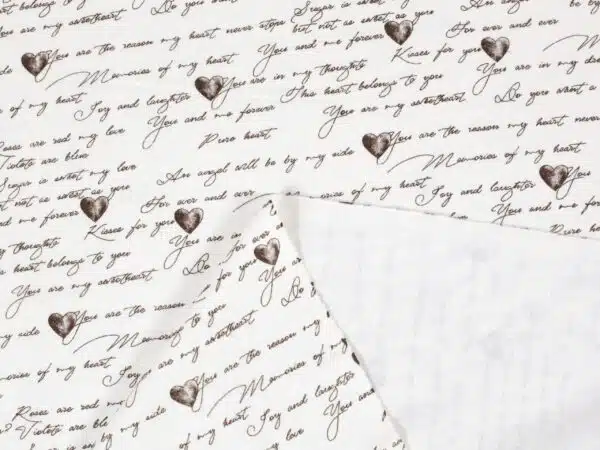 heart belongs to you
Sugar is sweet
An angel
be by
You are my sweetheart
but not as sweet as you
For ever and ever
side
You are the reason my heart never stops
You and me forever
Kisses for you
You are in my
Memories of my heart
You are in my thoughts
This heart belongs to you
of my heart
Joy and laughter
You are my sweetheart
Do you want a
You and me forever
Roses are red my love
Pure heart
You are the reason my heart never
Violets are blue
Memories of my heart
Sugar is sweet my love
An angel will be by my side
You
but not as sweet as you
For ever and ever
memories of my heart
Joy and laughter
and me forever
Kisses for you
You and me
my thoughts
You are in
Pure
heart belongs to you
Do
for ever
You are my sweetheart
for you
You
Do
my side
You are the reason
Memories
to you
of my heart
are my sweetheart
Joy
You are the reason my
Roses are red
Memories of my
Violets are
by my side
Joy and laughter
of my heart
You and
my love